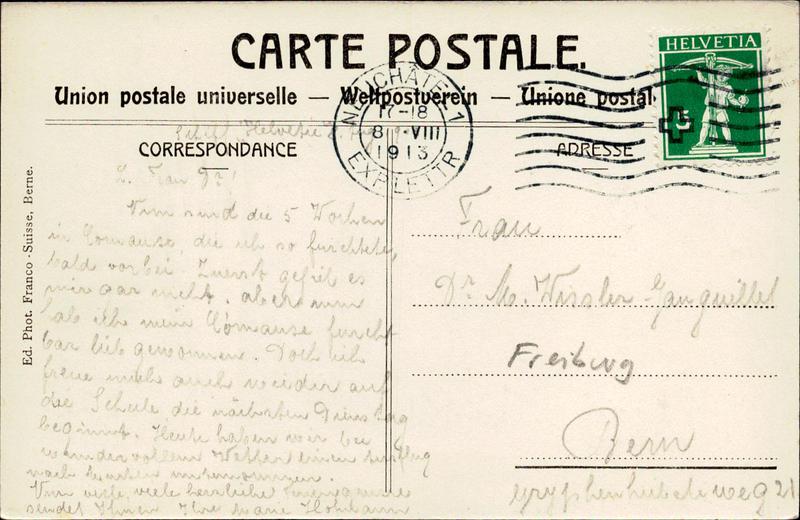 CARTE POSTALE.
Union postale universelle — Weltpostverein — Unione postal
HELVETIA
5
NEUCHÂTEL 1
17-18
8.VIII
1913
EXP. LETTR.
CORRESPONDANCE
ADRESSE
Ed. Phot. Franco-Suisse, Berne.
Hôtel Helvetie 8. Aug.
L. Frau Dr!
Nun sind die 5 Wochen
in Cornaux, die ich so fürchtete,
bald vorbei. Zuerst gefiel es
mir gar nicht, aber nun
hab ich mein furcht
bar lieb gewonnen. Doch ich
freue mich auch wieder auf
die Schule die nächsten Dienstag
beginnt. Heute haben wir bei
wundervollem Wetter einen Ausflug
nach unternommen.
Nun viele, viele herzliche
sendet Ihnen Ihre Marie Hofmann
Frau
Dr. M. Wissler-Ganguillet
Freiburg
Bern
Gryphenhübeliweg 21